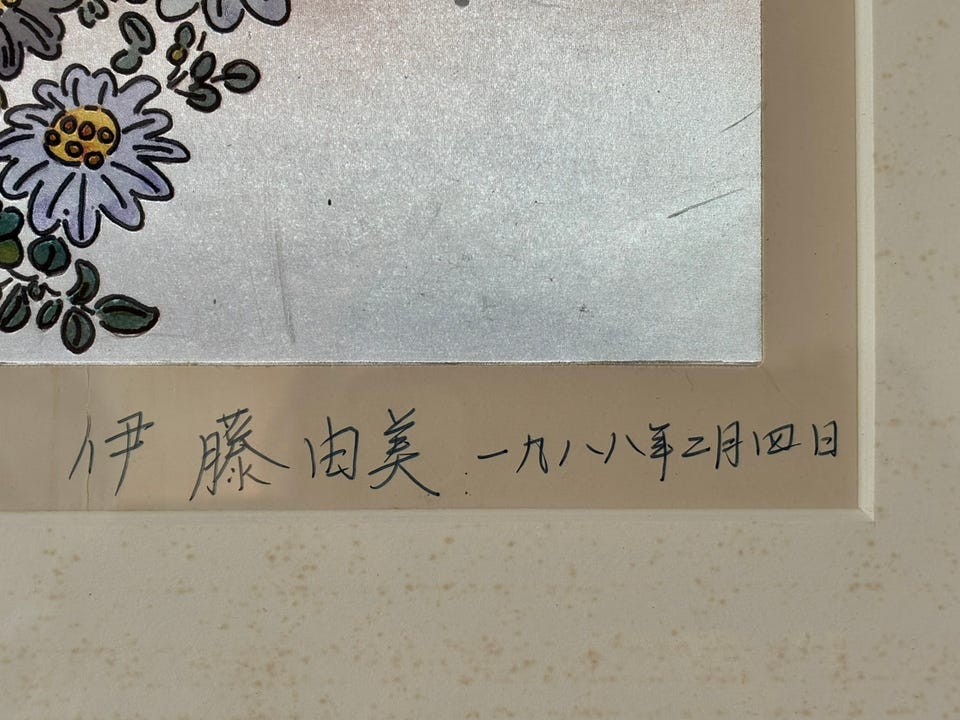 伊藤由美 一九八八年二月四日